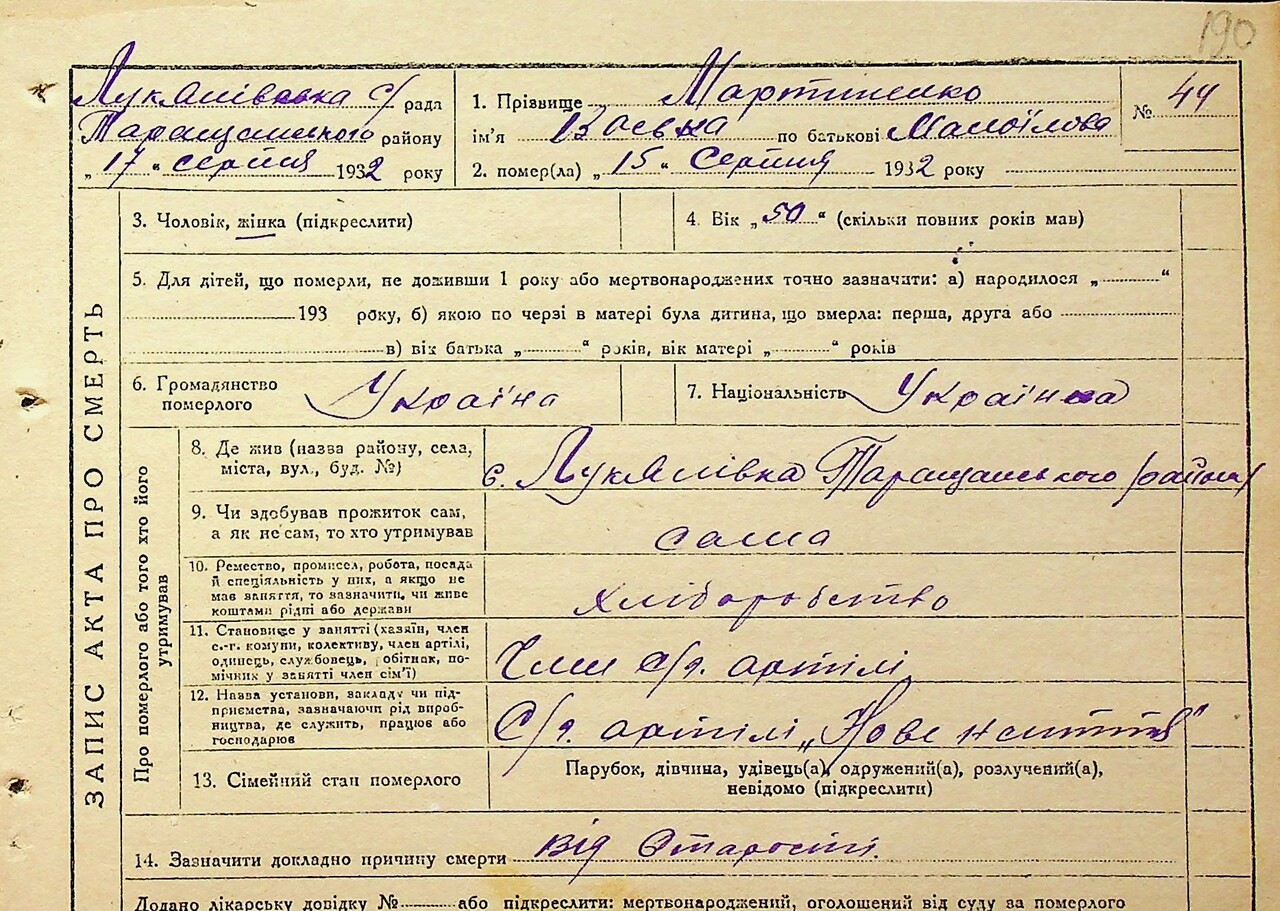 190
Лукянівська с/рада
Таращанського району
„17“ серпня 1932 року
1. Прізвище Мартиненко
ім'я по батькові Мамойлова
2. помер(ла) „15“ Серпня 1932 року
№ 44
ЗАПИС АКТА ПРО СМЕРТЬ
3. Чоловік, жінка (підкреслити)
4. Вік „50“ (скільки повних років мав)
5. Для дітей, що померли, не доживши 1 року або мертвонароджених точно зазначити: а) народилося „ “
193 року, б) якою по черзі в матері була дитина, що вмерла: перша, друга або
в) вік батька „ “ років, вік матері „ “ років
6. Громадянство
померлого
Україна
7. Національність Українка
Про померлого або того хто його
утримував
8. Де жив (назва району, села,
міста, вул., буд. №)
с. Лукянівка Таращанського району
9. Чи здобував прожиток сам,
а як не сам, то хто утримував
сама
10. Ремество, промисел, робота, посада
й спеціяльність у них, а якщо не
має заняття, то зазначити, чи живе
коштами рідні або держави
хліборобство
11. Становище у занятті (хазяїн, член
с.-г. комуни, колективу, член артілі,
одинець, службовець, робітник, по-
мічних у занятті член сім'ї)
Член с/г. артілі
12. Назва установи, закладу чи під-
приємства, зазначаючи рід вироб-
ництва, де служить, працює або
господарює
С/г. артілі „Нове життя“
13. Сімейний стан померлого
Парубок, дівчина, удівець(а), одружений(а), розлучений(а),
невідомо (підкреслити)
14. Зазначити докладно причину смерти від Старости.
Додано лікарську довідку № або підкреслити: мертвонароджений, оголошений від суду за померлого